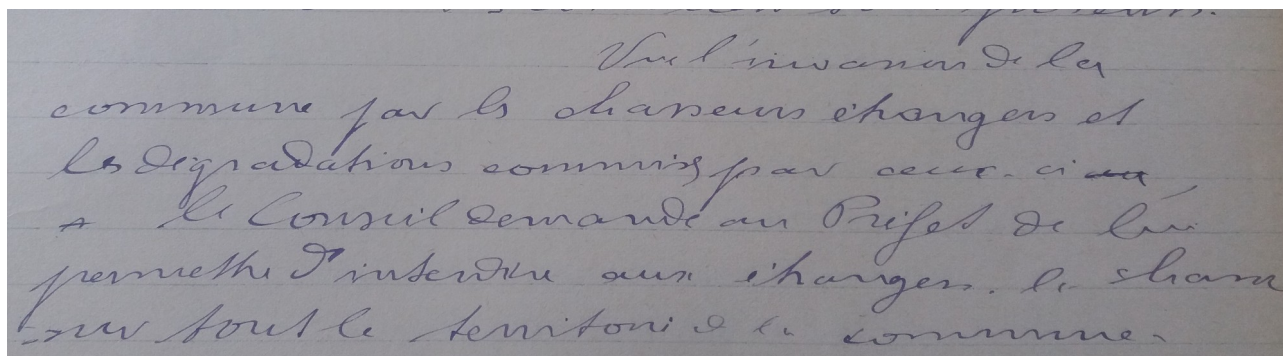 Vu l'invasion de la
commune par les chasseurs étrangers et
les dégradations commises par ceux-ci
le Conseil demande au Préfet de lui
permettre d'interdire aux étrangers la chasse
sur tout le territoire de la commune.